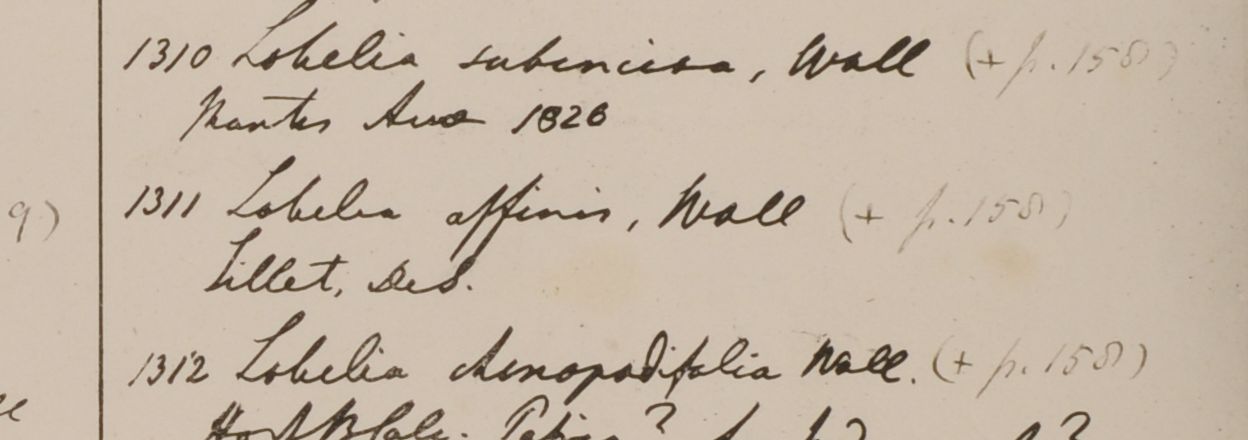 1310 Lobelia subincisa, Wall (+ p. 158)
Montes Ava 1826
9)
1311 Lobelia affinis, Wall (+ p. 158)
Sillet, De S.
1312 Lobelia chenopodifolia Wall. (+ p. 158)